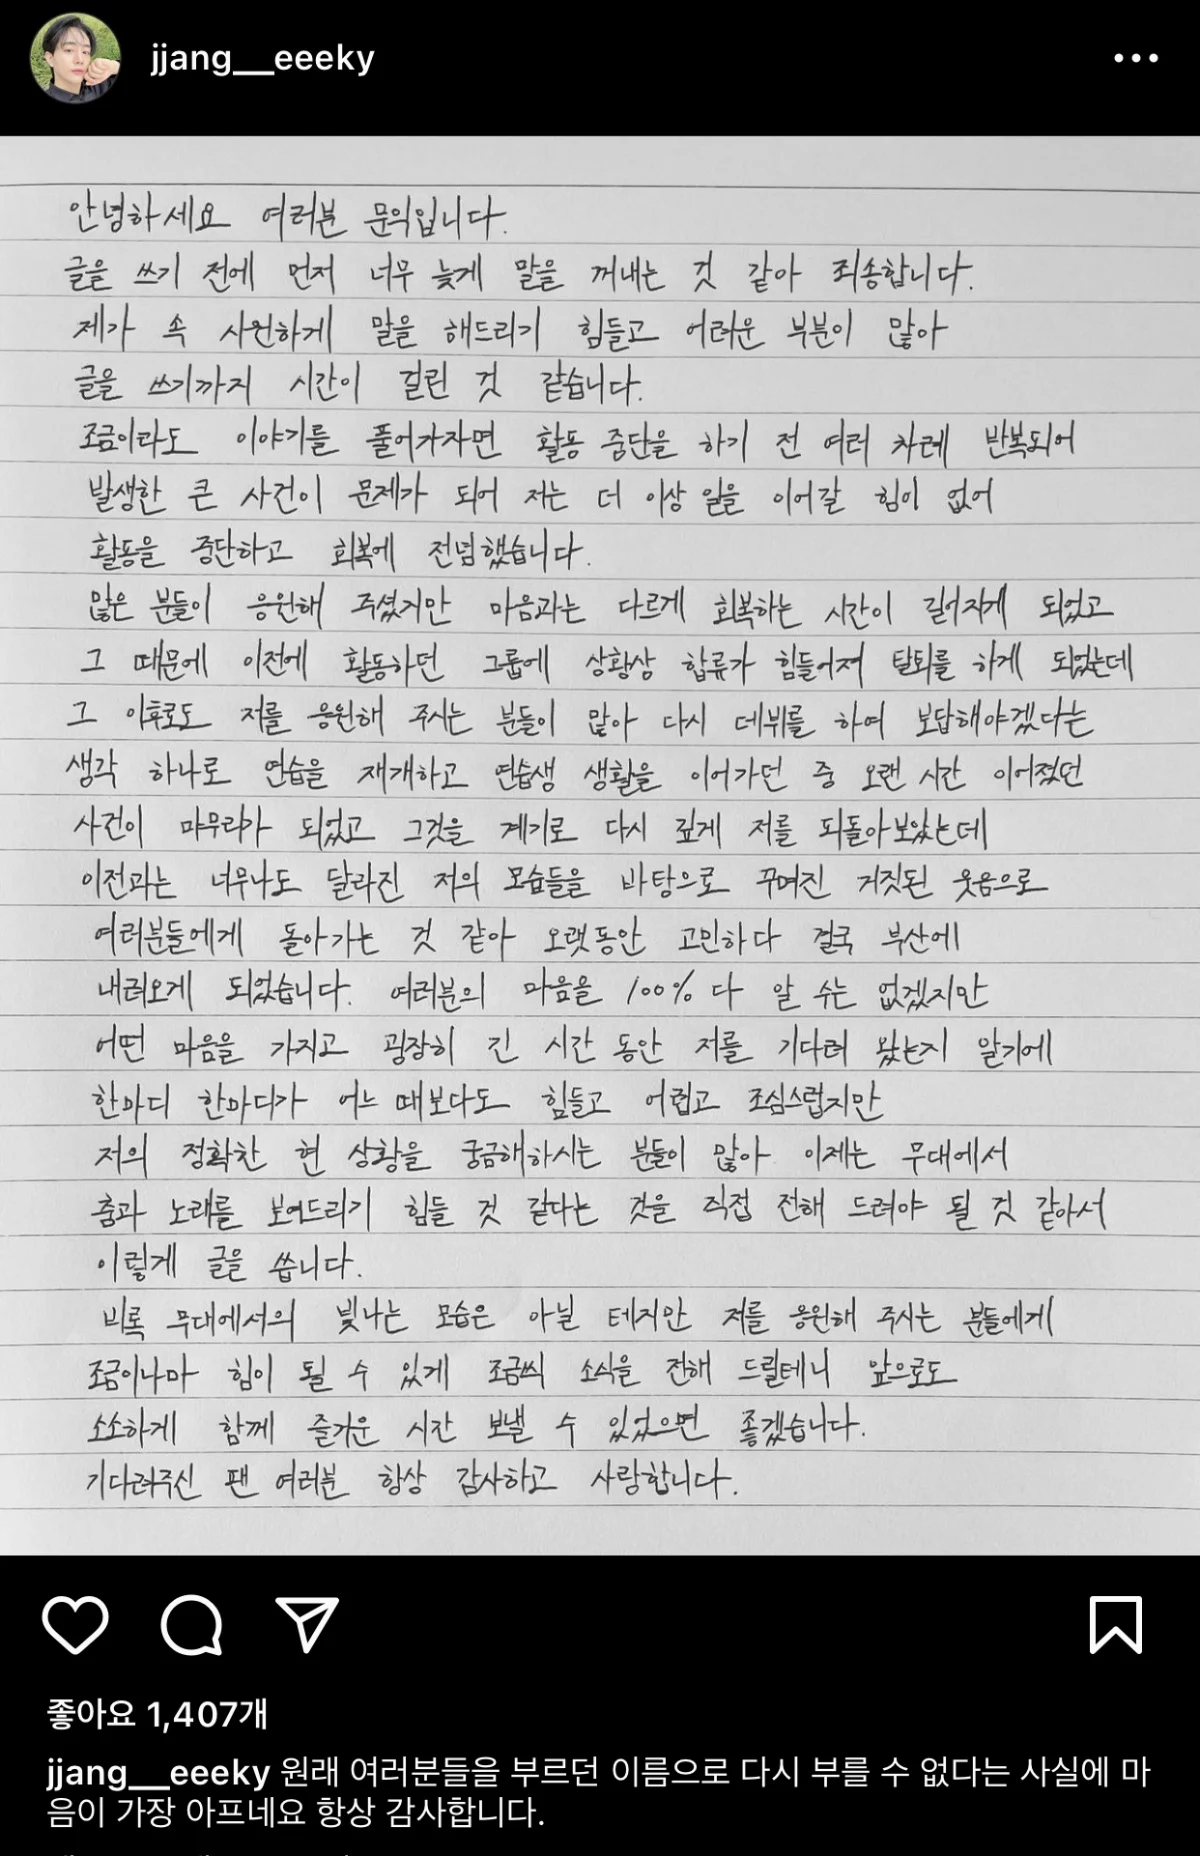 jjang__eeeky
안녕하세요 여러분 문익입니다.
글을 쓰기 전에 먼저 너무 늦게 말을 꺼내는 것 같아 죄송합니다.
제가 속 시원하게 말을 해드리기 힘들고 어려운 부분이 많아
글을 쓰기까지 시간이 걸린 것 같습니다.
조금이라도 이야기를 풀어가자면 활동 중단을 하기 전 여러 차례 반복되어
발생한 큰 사건이 문제가 되어 저는 더 이상 일을 이어갈 힘이 없어
활동을 중단하고 회복에 전념했습니다.
많은 분들이 응원해 주셨지만 마음과는 다르게 회복하는 시간이 길어지게 되었고
그 때문에 이전에 활동하던 그룹에 상황상 합류가 힘들어져 탈퇴를 하게 되었는데
그 이후로도 저를 응원해 주시는 분들이 많아 다시 데뷔를 하여 보답해야겠다는
생각 하나로 연습을 재개하고 연습생 생활을 이어가던 중 오랜 시간 이어졌던
사건이 마무리가 되었고 그것을 계기로 다시 깊게 저를 되돌아보았는데
이전과는 너무나도 달라진 저의 모습들을 바탕으로 꾸며진 거짓된 웃음으로
여러분들에게 돌아가는 것 같아 오랫동안 고민하다 결국 부산에
내려오게 되었습니다. 여러분의 마음을 100% 다 알 수는 없겠지만
어떤 마음을 가지고 굉장히 긴 시간 동안 저를 기다려 왔는지 알기에
한마디 한마디가 어느 때보다도 힘들고 어렵고 조심스럽지만
저의 정확한 현 상황을 궁금해하시는 분들이 많아 이제는 무대에서
춤과 노래를 보여드리기 힘들 것 같다는 것을 직접 전해 드려야 될 것 같아서
이렇게 글을 씁니다.
비록 무대에서의 빛나는 모습은 아닐 테지만 저를 응원해 주시는 분들에게
조금이나마 힘이 될 수 있게 조금씩 소식을 전해 드릴테니 앞으로도
소소하게 함께 즐거운 시간 보낼 수 있었으면 좋겠습니다.
기다려주신 팬 여러분 항상 감사하고 사랑합니다.
좋아요 1,407개
jjang__eeeky 원래 여러분들을 부르던 이름으로 다시 부를 수 없다는 사실에 마
음이 가장 아프네요 항상 감사합니다.